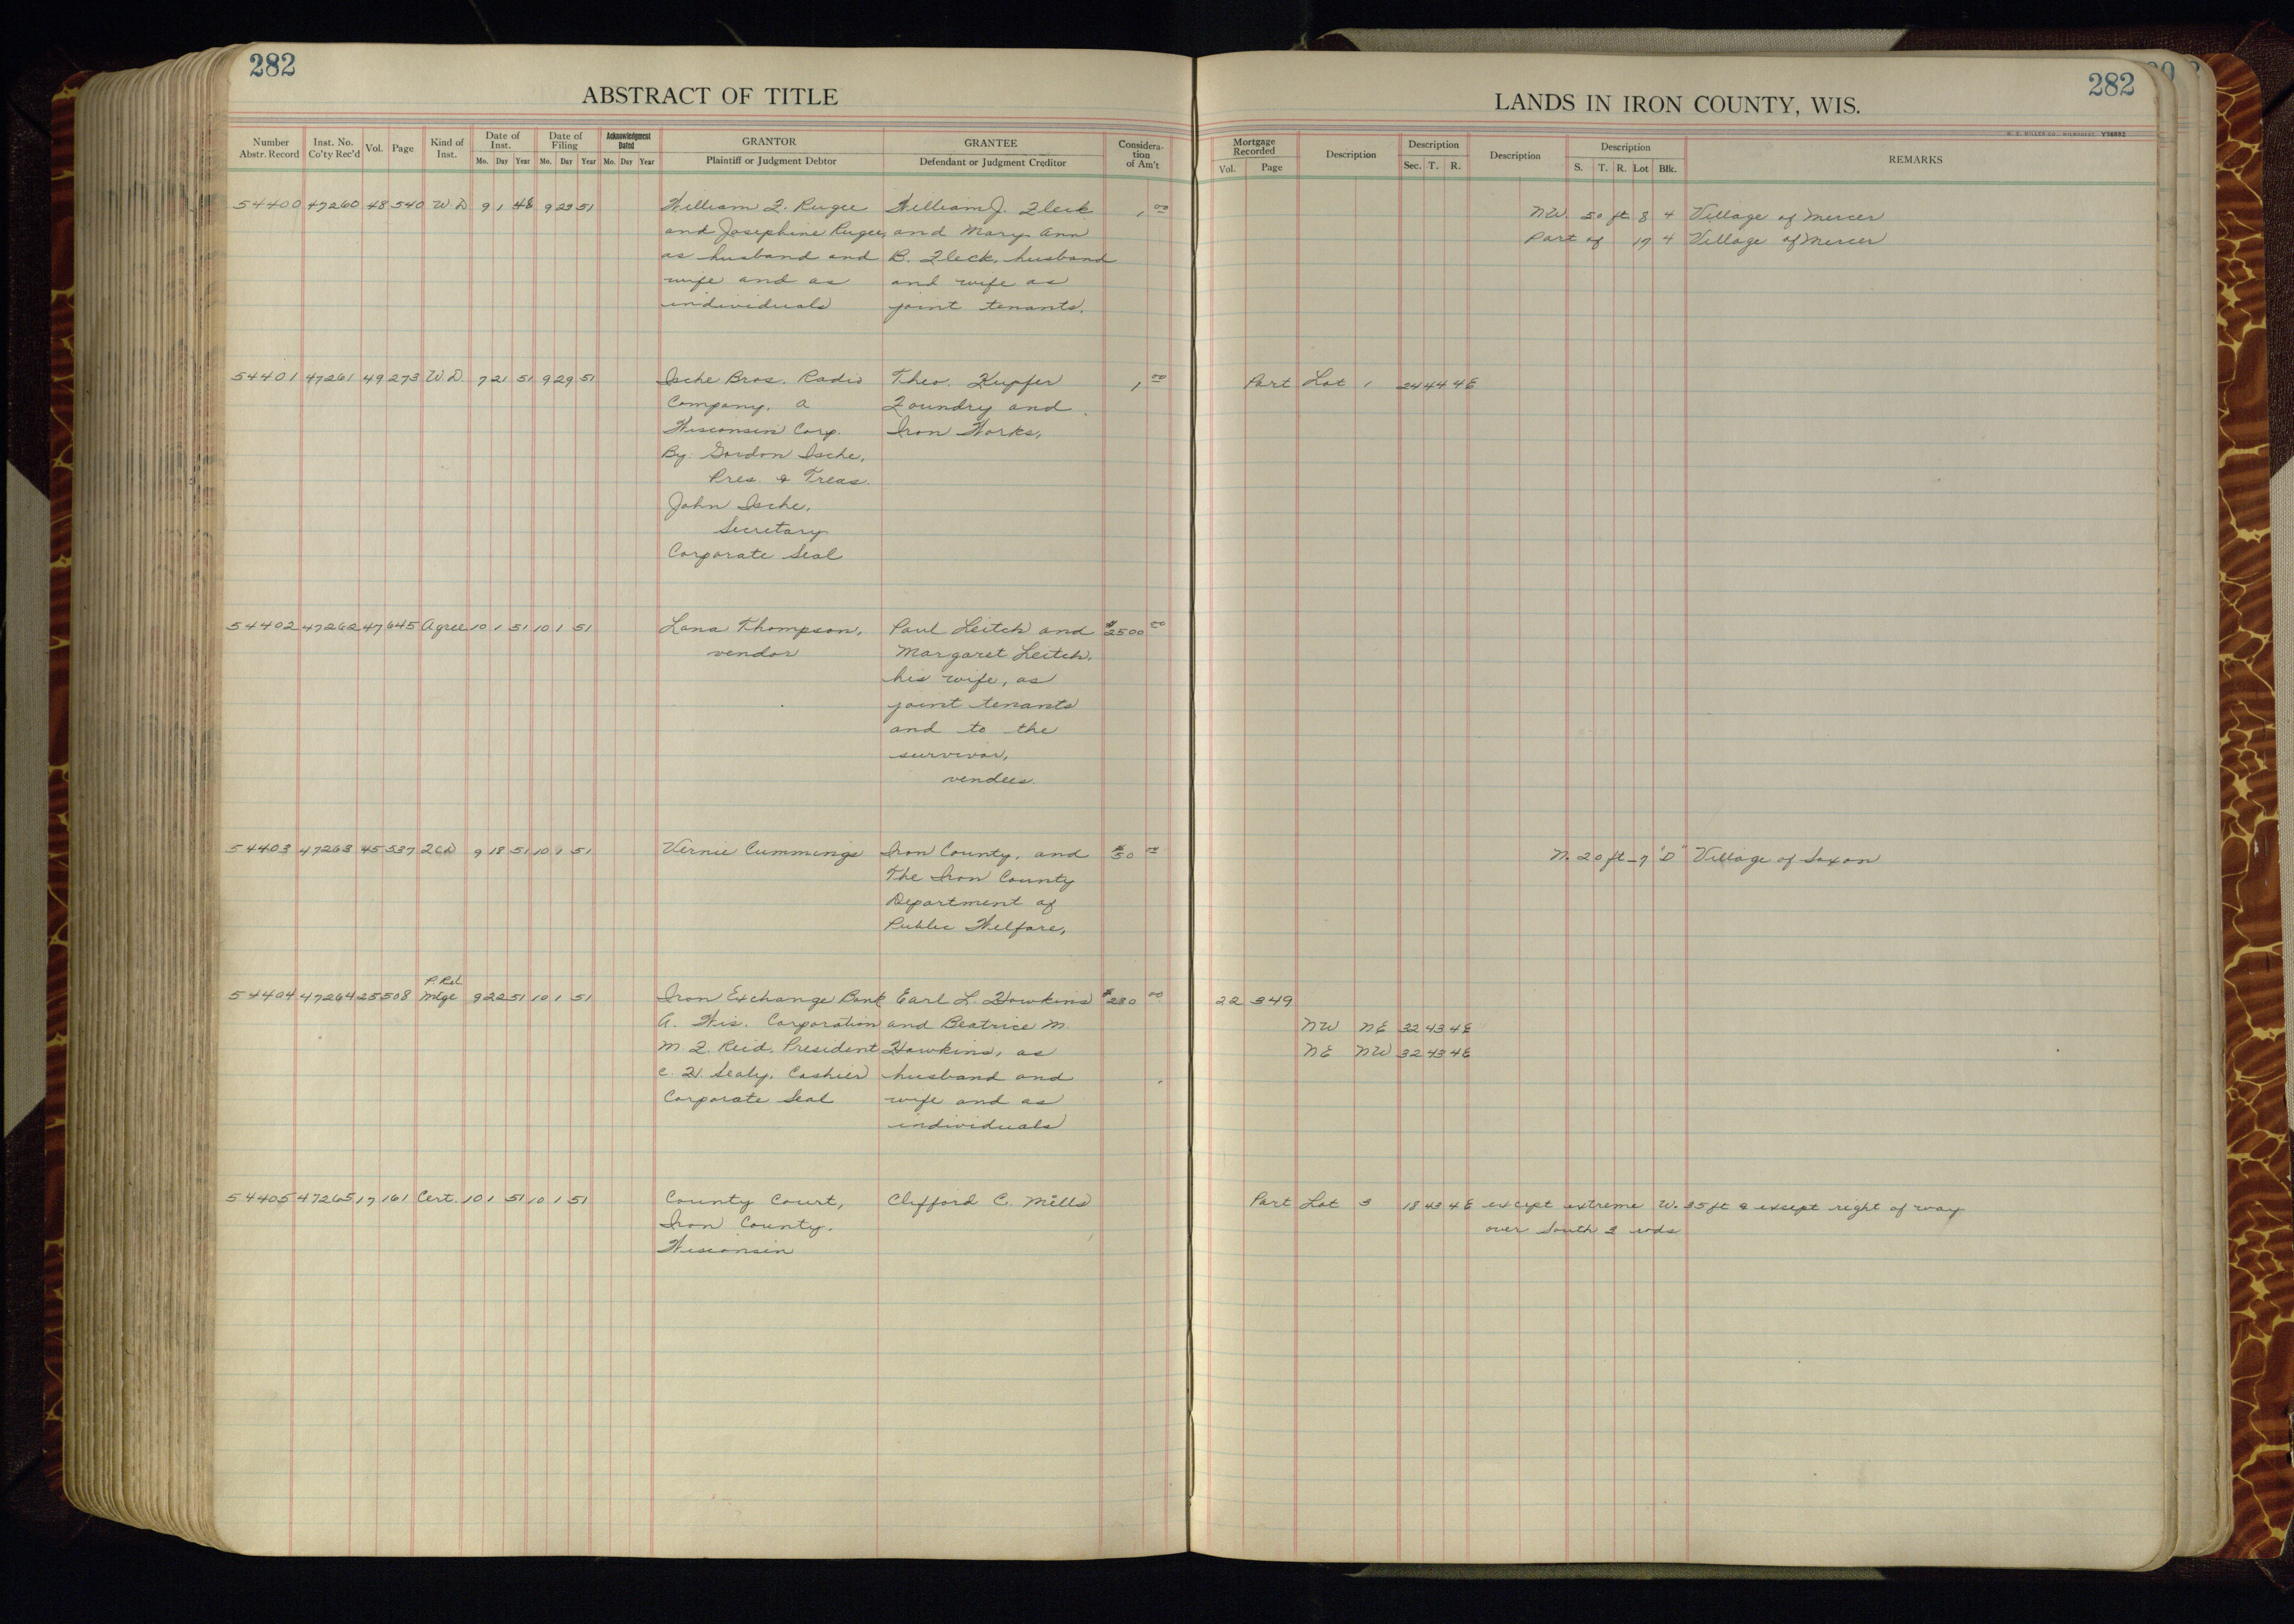 282
ABSTRACT OF TITLE
Number Abstr. Record Inst. No. Co'ty Rec'd Vol. Page Kind of Inst. Date of Inst. Mo. Day Year Date of Filing Mo. Day Year Acknowledgment Dated Mo. Day Year GRANTOR Plaintiff or Judgment Debtor GRANTEE Defendant or Judgment Creditor Considera-tion of Am't
54400 47260 48 540 W.D 9 1 48 9 29 51 William F. Rugee William J. Fleck 1,00
and Josephine Rugee, and Mary Ann
as husband and B. Fleck, husband
wife and as and wife as
individuals joint tenants.
54401 47261 49 273 W.D. 7 21 51 9 29 51 Ische Bros. Radio Theo. Kupfer 1,00
Company, a Foundry and
Wisconsin Corp. Iron Works,
By: Gordon Ische,
Pres. & Treas.
John Ische,
Secretary
Corporate Seal
54402 47262 47 645 Agree 10 1 51 10 1 51 Lana Thompson, Paul Leitch and $2500 00
vendor Margaret Leitch,
his wife, as
joint tenants
and to the
survivor,
vendees.
54403 47263 45 537 QCD 9 18 51 10 1 51 Vernie Cummings Iron County, and $50 00
The Iron County
Department of
Public Welfare,
P. Rel.
54404 47264 25 508 Mtge 9 22 51 10 1 51 Iron Exchange Bank Earl L. Hawkins $280 00
A. Wis. Corporation and Beatrice M.
M. F. Reid, President Hawkins, as
Sealy, Cashier husband and
Corporate Seal wife and as
individuals
54405 47265 17 161 Cert. 10 1 51 10 1 51 County Court, Clifford C. Mills
Iron County,
Wisconsin
282
LANDS IN IRON COUNTY, WIS.
Y36882
Mortgage Recorded Vol. Page Description Description Sec. T. R. Description Description S. T. R. Lot Blk. REMARKS
NW. 50 ft 8 4 Village of Mercer
Part of 17 4 Village of Mercer
Part Lot 1 24 44 4E
N. 20 ft - 7 "D" Village of Saxon
22 349
NW NE 32 43 4E
NE NW 32 43 4E
Part Lot 3 18 43 4E except extreme W. 35 ft & except right of way
over South 3 rods